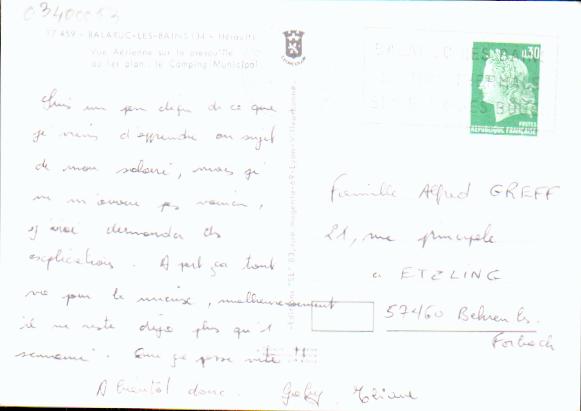 03400053
17 459 - BALARUC-LES-BAINS (34 - Hérault)
Vue Aérienne sur la presqu'île
au 1er plan : le Camping Municipal
0,30
POSTES
REPUBLIQUE FRANÇAISE
Suis un peu déçu de ce que
je viens d'apprendre au sujet
de mon salaire, mais je
ne m'avoue pas vaincu,
j'irai demander des
explications. A part ça tout
va pour le mieux, malheureusement
il ne reste déjà plus qu'1
semaine. Que ça passe vite !!
A bientôt donc. Gaby,
Famille Alfred GREFF
21, rue principale
à ETZLING
57460 Behren ls.
Forbach